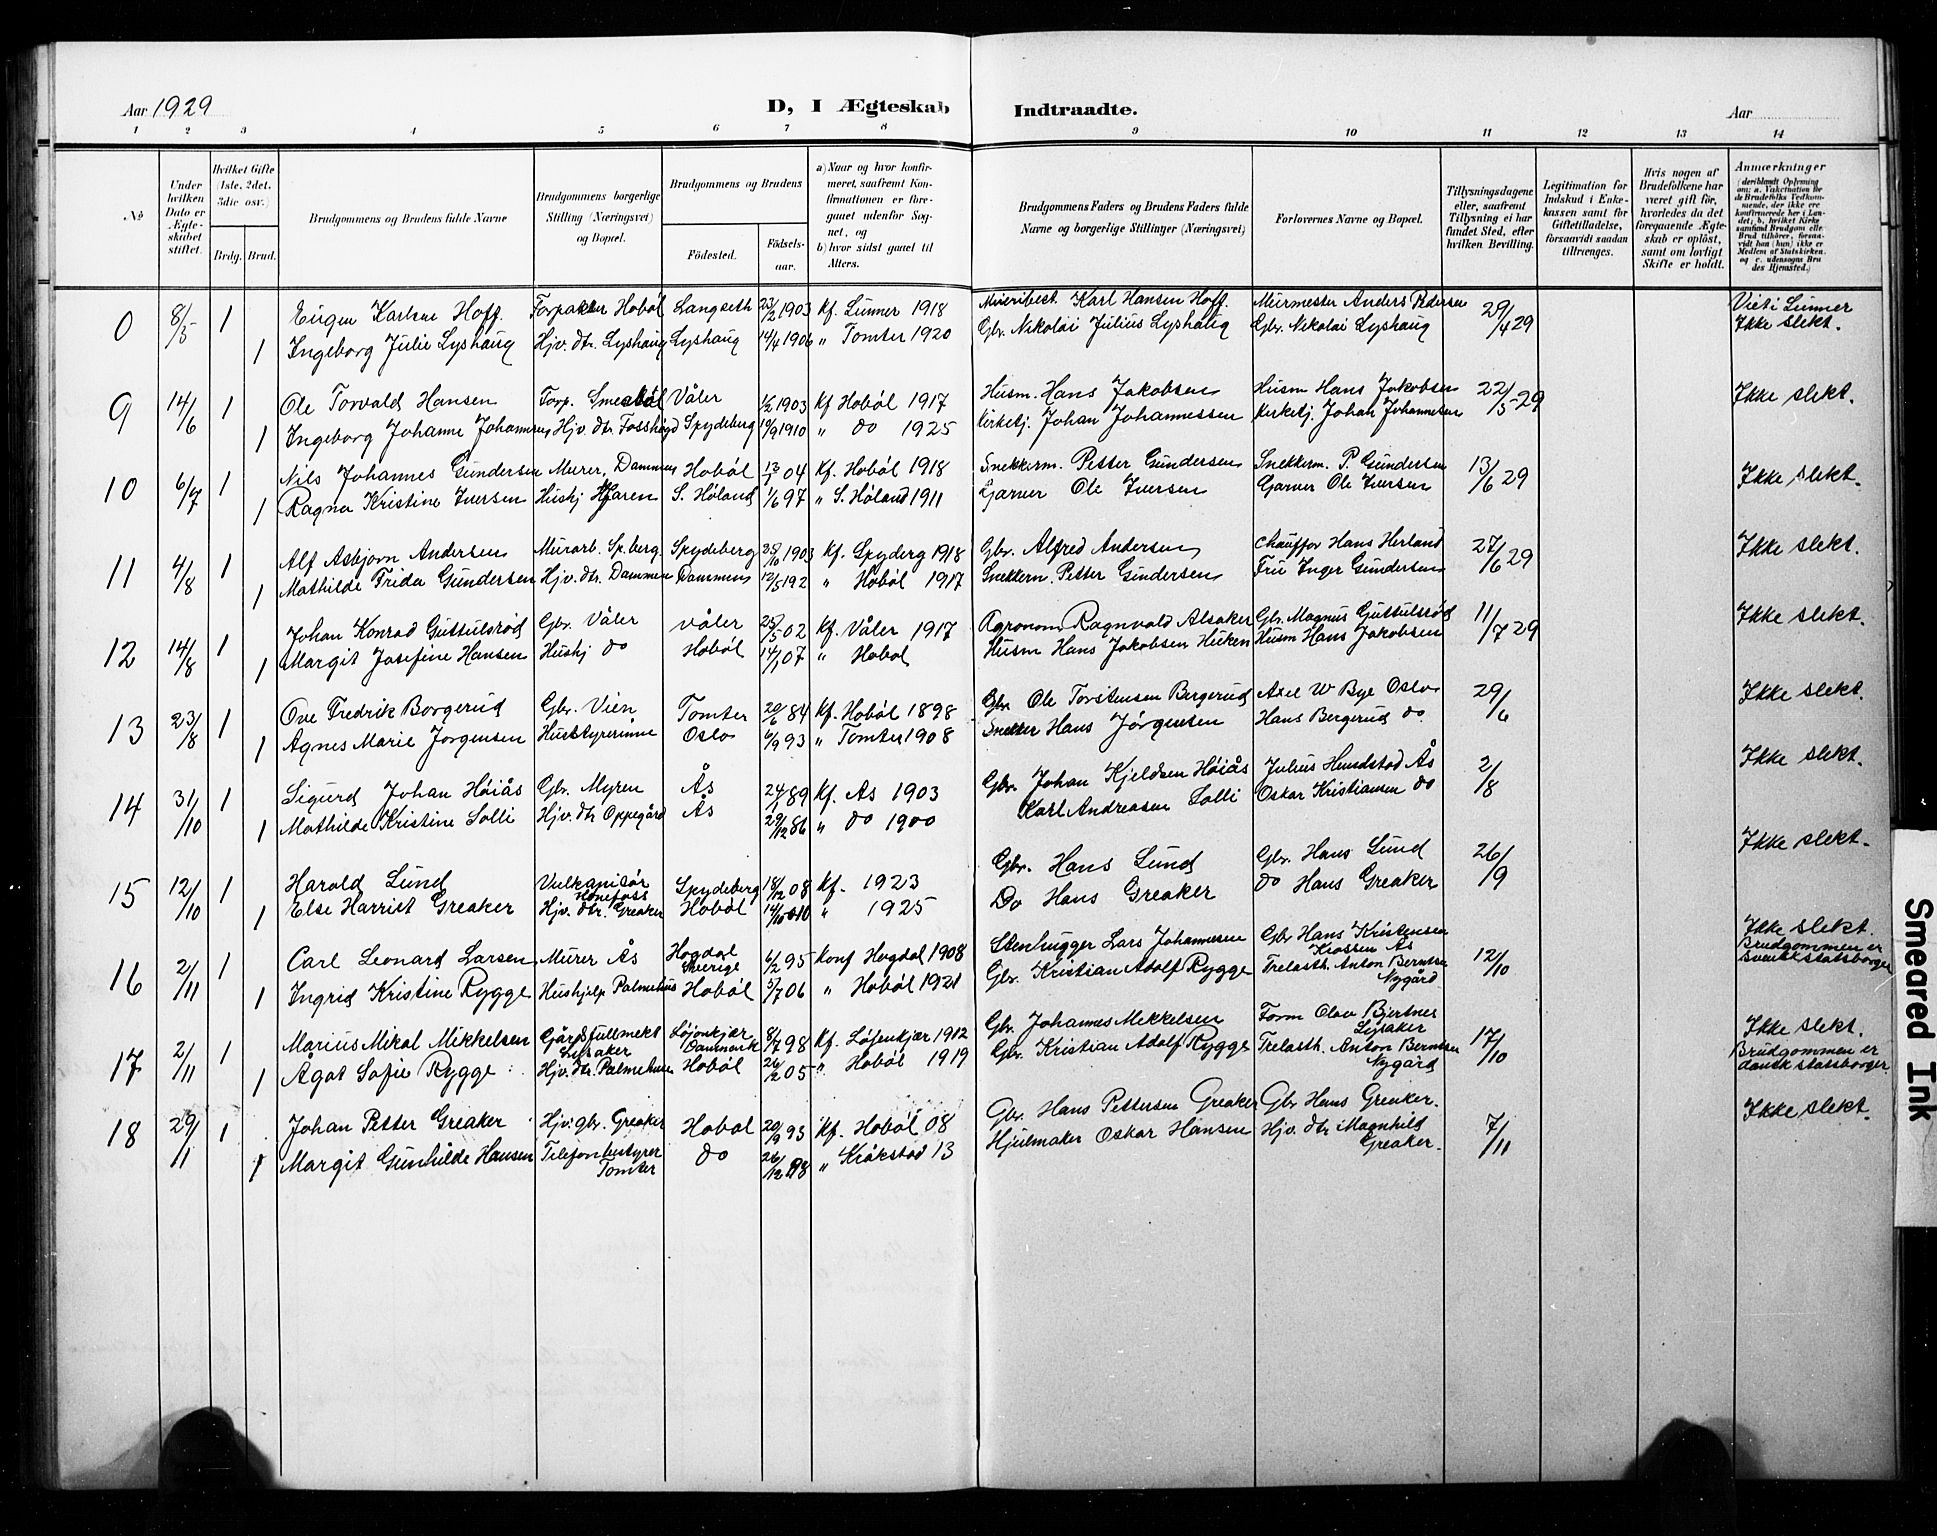 Aar 1929
D, I Ægteskab Indtraadte.
Aar
1 2 3 4 5 6 7 8 9 10 11 12 13 14
No
Under hvilken Dato er Ægteskabet stiftet.
Hvilket Gifte (1ste, 2det, 3die osv.)
Brdg. Brud.
Brudgommens og Brudens fulde Navne
Brudgommens borgerlige Stilling (Næringsvei) og Bopæl.
Brudgommens og Brudens
Fødested. Fødselsaar.
a) Naar og hvor konfirmeret, saafremt Konfirmationen er foregaaet udenfor Sognet, og
b) hvor sidst gaaet til Alters.
Brudgommens Faders og Brudens Faders fulde Navne og borgerlige Stillinger (Næringsvei)
Forlovernes Navne og Bopæl.
Tillysningsdagene eller, saafremt Tillysning ei har fundet Sted, efter hvilken Bevilling.
Legitimation for Indskud i Enkekassen samt for Giftetilladelse, forsaavidt saadan tiltrænges.
Hvis nogen af Brudefolkene har været gift før, hvorledes da det foregaaende Ægteskab er opløst, samt om lovligt Skifte er holdt.
Anmærkninger
(deriblandt Oplysning om: a. Vakcination for de Brudefolks Vedkommende, der ikke ere konfirmerede her i Landet; b. hvilket Kirkesamfund Brudgom eller Brud tilhører, forsaavidt han (hun) ikke er Medlem af Statskirken, og c. udensogns Brudes Hjemsted.)
0 8/5 1 Eugen Karlsen Hoff. Forpakter Hobøl Langseth 23/2 1903 Kf. Lunner 1918 Karl Hansen Hoff. Murmester Anders Pedersen 29/4 29 Viet i Lunner
Ikke slekt.
1 Ingeborg Julie Lyshaug Hjv. dtr. Lyshaug Lyshaug 14/4 1906 " Tomter 1920 Gbr. Nikolai Julius Lyshaug Gbr. Nikolai Lyshaug
9 14/6 1 Ole Torvald Hansen Forp. Smedbøl Våler 1/2 1903 Kf Hobøl 1917 Husm. Hans Jakobsen Husm Hans Jakobsen 22/5 29 Ikke slekt.
1 Ingeborg Johanne Johannesen Hjv. dtr. Fosshøgd Spydeberg 19/9 1910 " do 1925 Kirketj. Johan Johannessen Kirketj. Johan Johannesen
10 6/7 1 Nils Johannes Gundersen Murer, Dammen Hobøl 13/1 04 Kf. Hobøl 1918 Snekkerm. Petter Gundersen Snekkerm. P. Gundersen 13/6 29 Ikke slekt.
1 Ragna Kristine Iversen Hushj Haren S. Høland 1/6 97 " S. Høland 1911 Garver Ole Iversen Garver Ole Iversen
11 4/8 1 Alf Asbjørn Andersen Murarb. Sp.berg. Spydeberg 25/10 1903 Kf. Spyderg 1918 Gbr. Alfred Andersen Chauffør Hans Herland 27/6 29 Ikke slekt.
1 Mathilde Frida Gundersen Hjv. dtr. Dammen Dammen 12/5 192 " Hobøl 1917 Snekkerm. Petter Gundersen Fru Inger Gundersen
12 14/8 1 Johan Konrad Guttulsrød Gbr. Våler våler 25/5 02 Kf. Våler 1917 Agronom Ragnvald Alsaker Gbr. Magnus Guttulsrød 11/7 29 Ikke slekt.
1 Margit Josefine Hansen Hushj do Hobøl 14/1 07 " Hobøl Husm Hans Jakobsen Husm Hans Jakobsen
13 23/8 1 Ove Fredrik Borgerud Gbr. Vien Tomter 20/6 84 Kf. Hobøl 1898 Gbr Ole Torstensen Bergerud Axel W Bye Oslo 29/6 Ikke slekt.
1 Agnes Marie Jørgensen Husbstyrerinne Oslo 6/9 93 " Tomter 1908 Snekker Hans Jørgensen Hans Bergerud do.
14 31/10 1 Sigurd Johan Høiås Gbr. Myren Ås 24/1 89 Kf. As 1903 Gbr. Johan Kjeldsen Høiås Julius Hundstad Ås 2/8 Ikke slekt.
1 Mathilde Kristine Solli Hjv. dtr Oppegård Ås 29/12 86 " do 1900 Karl Andreasen Solli Oskar Kristiansen do
15 12/10 1 Harald Lund Vulkanisør Hønefoss Spydeberg 18/12 08 Kf. 1923 Gbr. Hans Lund Gbr. Hans Lund 26/9 Ikke slekt.
1 Else Harriet Greaker Hjv. dtr. Greaker Hobøl 14/10 10 " 1925 Do Hans Greaker do Hans Greaker
16 2/11 1 Carl Leonard Larsen Murer Ås Hogdal Sverige 6/2 95 Konf Hogdal 1908 Stenhugger Lars Johannesen Gbr Hans Kristensen Krossen Ås 12/10 Ikke slekt.
Brudgommen er svensk statsborger
1 Ingrid Kristine Rygge Hushjelp Palmehus Hobøl 3/7 06 " Hobøl 1921 Gbr. Kristian Adolf Rygge Trelasth. Anton Berntsen Nygård
17 2/11 1 Marius Mikal Mikkelsen Gårdsfullmekt Lysaker Løjenkjær Danmark 8/7 98 Kf. Løjenkjær 1912 Gbr. Johannes Mekkelsen Form Olav Bjertnes Lysaker 17/10 Ikke slekt.
Brudgommen er dansk statsborger.
1 Ågot Sofie Rygge Hjv. dtr. Palmehus Hobøl 26/2 05 " Hobøl 1919 Gbr. Kristian Adolf Rygge Trelasth. Anton Berntsen Nygård
18 29/11 1 Johan Petter Greaker Hjv. gbr. Greaker Hobøl 20/9 93 Kf. Hobøl 08 Gbr. Hans Pettersen Greaker Gbr Hans Greaker. 7/11 Ikke slekt.
1 Margit Gunhilde Hansen Telefonbestyrer Tomter do 26/12 98 " Kråkstad 13 Hjulmaker Oskar Hansen Hjv. dtr Magnhild Greaker.
Smeared Ink